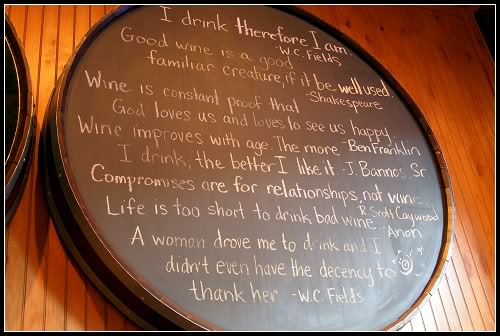 I drink therefore I am.
-W.C. Fields
Good wine is a good
familiar creature, if it be well used.
-Shakespeare
Wine is constant proof that
God loves us and loves to see us happy.
-Ben Franklin
Wine improves with age. The more
I drink, the better I like it. -J. Bannos, Sr.
Compromises are for relationships, not wine.
-R. Scott Caywood
Life is too short to drink bad wine
-Anon
A woman drove me to drink and I
didn't even have the decency to
thank her -W.C. Fields